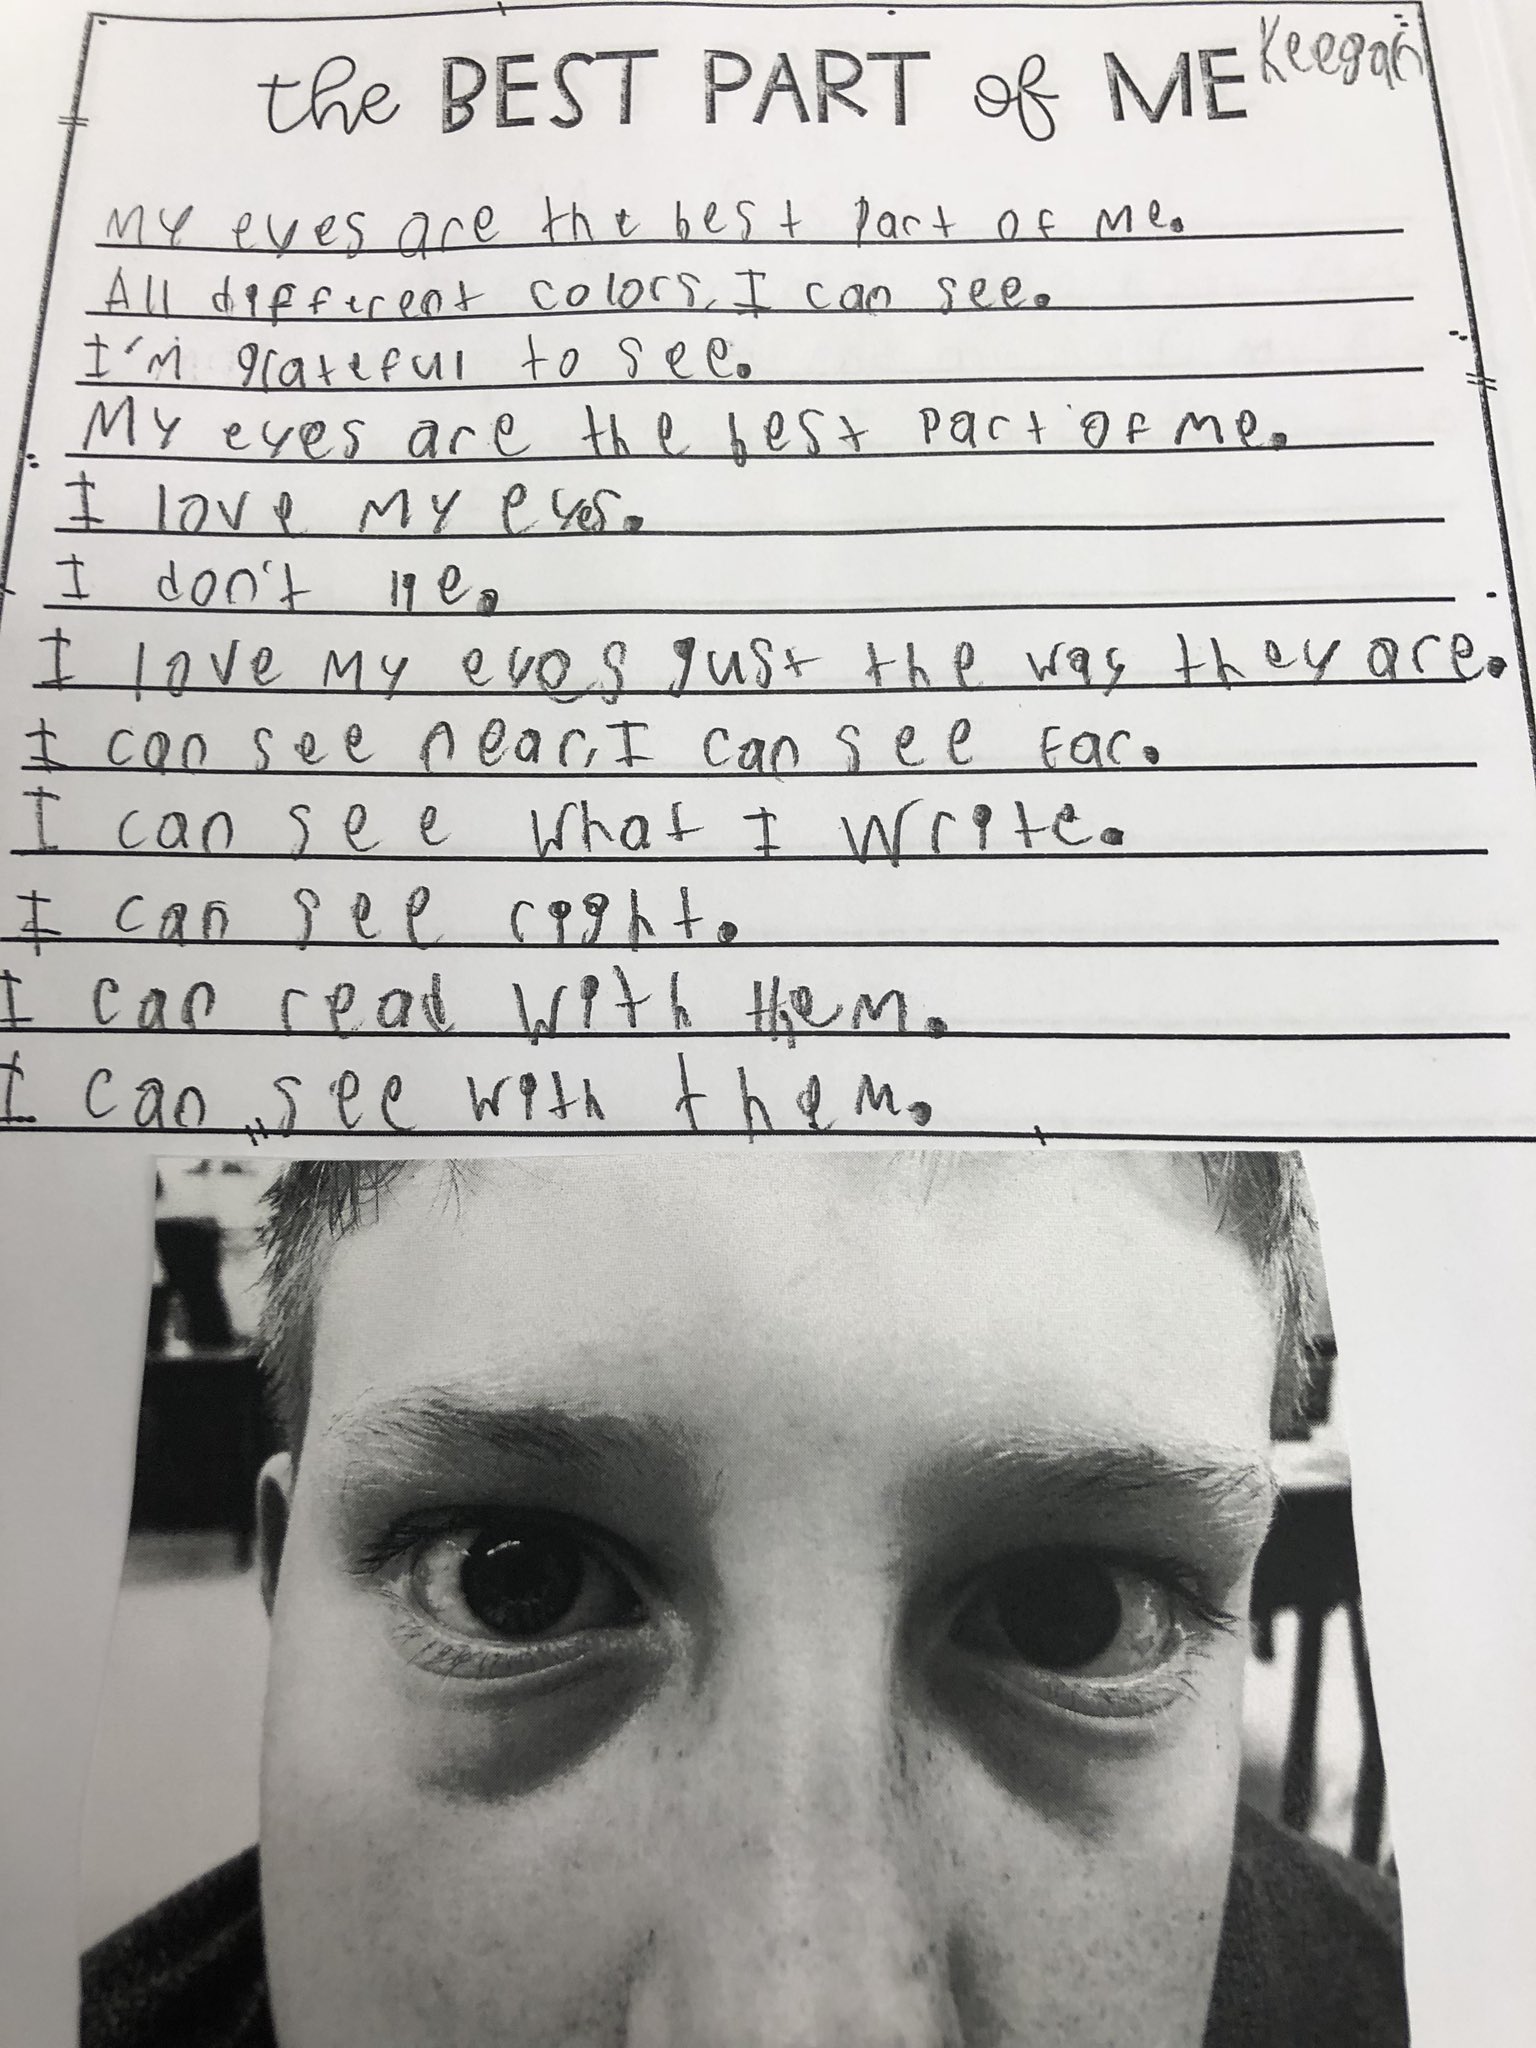 the BEST PART of ME Keegan
My eyes are the best part of me.
All different colors, I can see.
I'm grateful to see.
My eyes are the best part of me.
I love my eyes.
I don't lie.
I love my eyes just the way they are.
I can see near, I can see far.
I can see what I write.
I can see right.
I can read with them.
I can see with them.